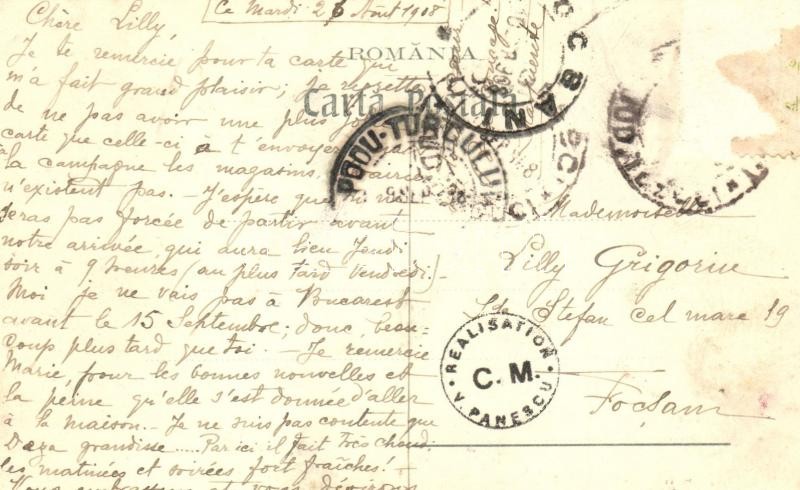 Ce Mardi 26 Août 1908
Chère Lilly,
Je te remercie pour ta carte qui
m'a fait grand plaisir; je regrette
de ne pas avoir une plus
carte que celle-ci à t'envoyer
la campagne les magasins
n'existent pas. - J'espère que tu ne
seras pas forcée de partir avant
notre arrivée qui aura lieu Jeudi
soir à 9 heures (au plus tard Vendredi). -
Moi je ne vais pas à Bucarest
avant le 15 Septembre; donc, beau-
coup plus tard que toi. - Je remercie
Marie, pour les bonnes nouvelles et
la peine qu'elle s'est donnée d'aller
à la maison. - Je ne suis pas contente que
grandisse ..... Par ici il fait très chaud,
les matinées et soirées fort fraîches! -
Vous embrassons et vous désirons
ROMÂNIA
Carta Postala
PODU-TURCULUI
Mademoiselle
Lilly Grigoriu
Str Stefan cel mare 19
Focşani
REALISATION
C. M.
V. PANESCU